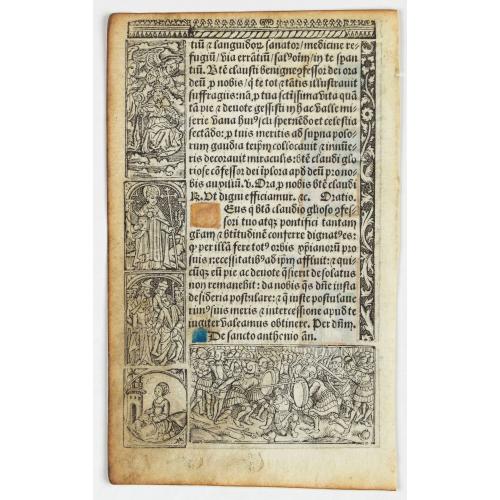 tiũ & languidoꝝ sanator/medicine re-
fugiũ/via errãtiũ/salꝰoĩm/in te span
tiũ. Btẽ claudi benigne ꝯfessor dei ora
deũ ꝓ nobis/q̃ te tot & tãtis illustrauit
suffragiis: nã ꝓ tua sctissima vita quã
tam pie & deuote gessisti in hac valle mi-
serie vana huiꝰ scli spernẽdo et celestia
sectãdo: ꝓ tuis meritis ad supna polo-
rum gaudia teip̃m collocauit & innũe-
ris decorauit miraculis: btẽ claudi glo
riose cõfessor dei ĩplora apd deũ ꝓ no-
bis auxiliũ. V. Ora ꝓ nobis btẽ claudi
R. Vt digni efficiamur. &c. Oratio.
Eus q̃ btõ claudio glioso ꝯfes-
sori tuo atqꝫ pontifici tantam
grãm & btĩtudinẽ conferre dignatꝰ es:
ꝙ per illã fere totꝰ orbis xp̃ianorũ pro
suis necessitatibꝰ ad ip̃m affluit: & qui
cũqꝫ eũ pie ac deuote q̃sierit desolatus
non remanebit: da nobis q̃s dñe iusta
desideria postulare: & q̃ iuste postulaue
rimꝰ suis meris & intercessione apud te
iugiter valeamus obtinere. Per dñm.
De sancto anthonio añ.